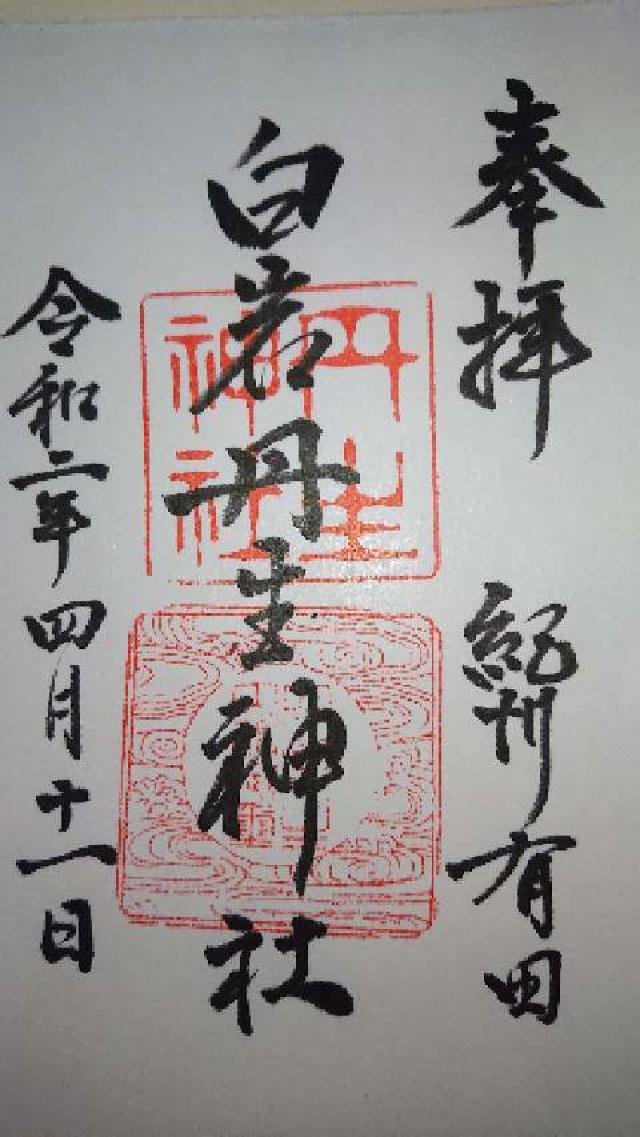 奉拝 紀州有田
白岩丹生神社
令和二年四月十一日
丹生
神社